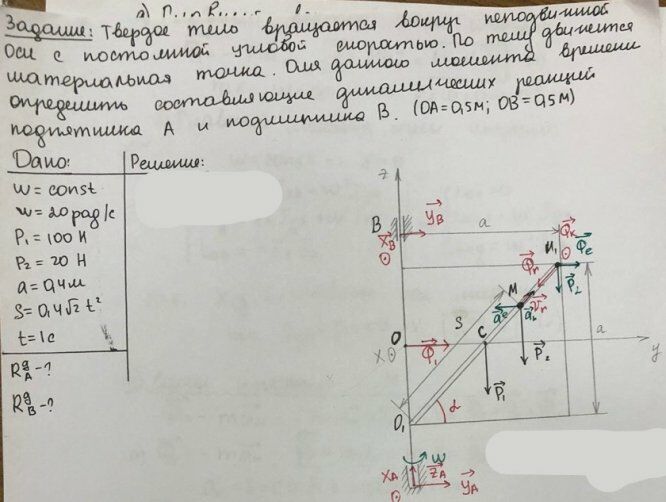 Задание: Твердое тело вращается вокруг неподвижной
оси с постоянной угловой скоростью. По телу движется
материальная точка. Для данного момента времени
определить составляющие динамических реакций
подпятника А и подшипника В. (OA=0,5м; OB=0,5м)
Дано:
Решение:
ω = const
ω = 20 рад/с
P₁ = 100 Н
P₂ = 20 Н
a = 0,4м
S = 0,4√2 t²
t = 1c
R^g_A - ?
R^g_B - ?
z
B
X_B
Y_B
a
Φ_k
M₁
Φ_e
Φ_r
P₂
M
a_e
a_r
V_r
S
a
O
X
Φ₁
C
y
P₂
P₁
O₁
α
ω
X_A
Z_A
Y_A